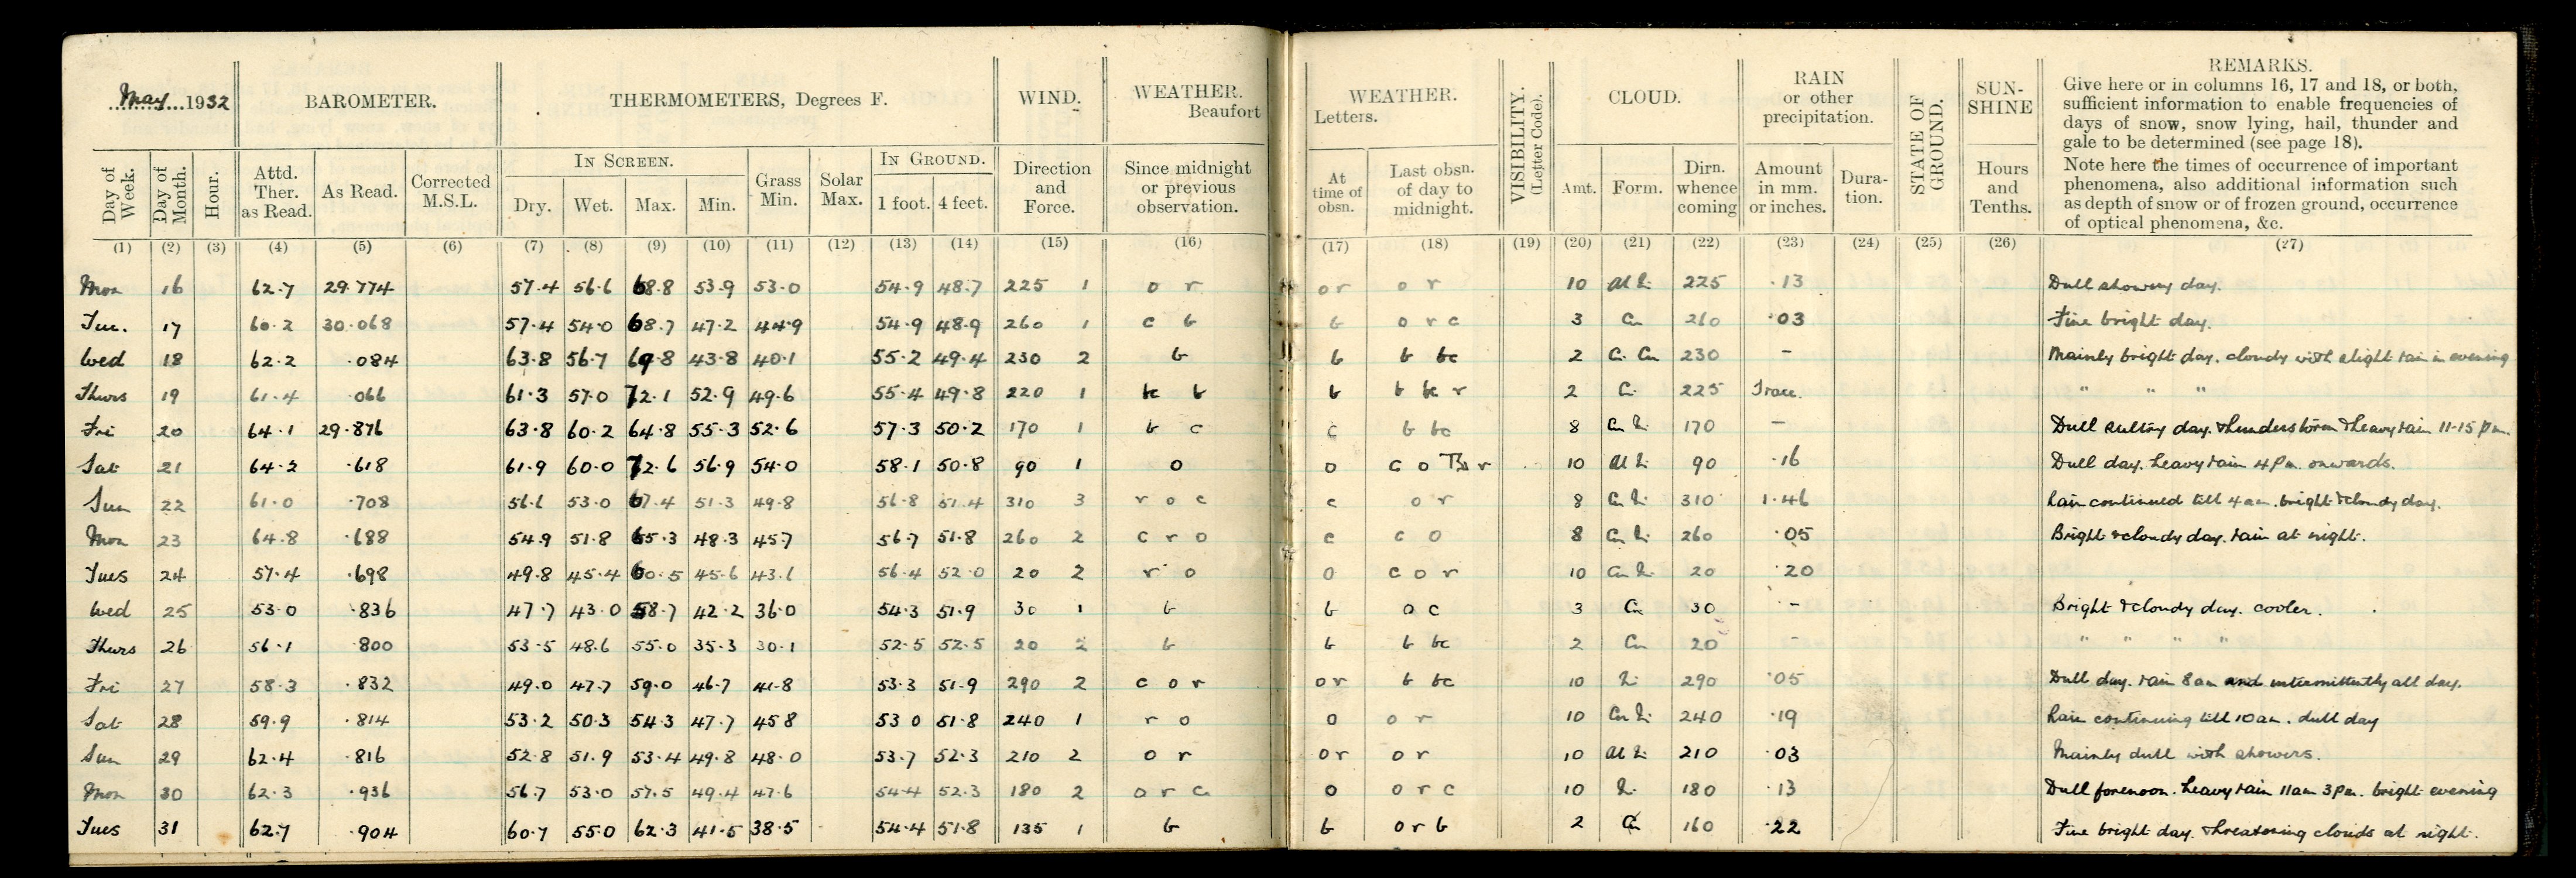 May 1932
BAROMETER.
THERMOMETERS, Degrees F.
WIND.
WEATHER.
Beaufort
WEATHER.
Letters.
VISIBILITY. (Letter Code).
CLOUD.
RAIN or other precipitation.
STATE OF GROUND.
SUN-SHINE
REMARKS.
Give here or in columns 16, 17 and 18, or both,
sufficient information to enable frequencies of
days of snow, snow lying, hail, thunder and
gale to be determined (see page 18).
Note here the times of occurrence of important
phenomena, also additional information such
as depth of snow or of frozen ground, occurrence
of optical phenomena, &c.
Day of Week.
Day of Month.
Hour.
Attd. Ther. as Read.
As Read.
Corrected M.S.L.
IN SCREEN.
Dry. Wet. Max. Min.
Grass Min.
Solar Max.
IN GROUND.
1 foot. 4 feet.
Direction and Force.
Since midnight or previous observation.
At time of obsn.
Last obsn. of day to midnight.
Amt. Form. Dirn. whence coming
Amount in mm. or inches.
Duration.
Hours and Tenths.
(1) (2) (3) (4) (5) (6) (7) (8) (9) (10) (11) (12) (13) (14) (15) (16) (17) (18) (19) (20) (21) (22) (23) (24) (25) (26) (27)
Mon 16 62.7 29.774 57.4 56.6 68.8 53.9 53.0 54.9 48.7 225 1 o r or o r 10 225 .13 Dull showery day.
Tue. 17 60.2 30.068 57.4 54.0 68.7 47.2 44.9 54.9 48.9 260 1 c b b o r c 3 Cu 260 .03 Fine bright day.
Wed 18 62.2 .084 63.8 56.7 69.8 43.8 40.1 55.2 49.4 230 2 b b b bc 2 Ci. Cu 230 - Mainly bright day. cloudy with slight rain in evening
Thurs 19 61.4 .066 61.3 57.0 72.1 52.9 49.6 55.4 49.8 220 1 bc b b b bc r 2 Ci. 225 Trace. " " "
Fri 20 64.1 29.876 63.8 60.2 64.8 55.3 52.6 57.3 50.2 170 1 b c c b bc 8 Cu Ni. 170 - Dull sultry day. Thunderstorm & heavy rain 11-15 pm.
Sat 21 64.2 .618 61.9 60.0 72.6 56.9 54.0 58.1 50.8 90 1 o o c o r 10 90 .16 Dull day. heavy rain 4 pm. onwards.
Sun 22 61.0 .708 56.6 53.0 67.4 51.3 49.8 56.8 51.4 310 3 r o c c o r 8 Cu Ni. 310 1.46 Rain continued till 4 am. bright & cloudy day.
Mon 23 64.8 .688 54.9 51.8 65.3 48.3 45.7 56.7 51.8 260 2 c r o c c o 8 Cu Ni. 260 .05 Bright & cloudy day. rain at night.
Tues 24 57.4 .698 49.8 45.4 60.5 45.6 43.1 56.4 52.0 20 2 r o o c o r 10 Cu Ni. 20 .20
Wed 25 53.0 .836 47.7 43.0 58.7 42.2 36.0 54.3 51.9 30 1 b b o c 3 Cu 30 - Bright & cloudy day. cooler.
Thurs 26 56.1 .800 53.5 48.6 55.0 35.3 30.1 52.5 52.5 20 2 b b b bc 2 Cu 20 - " " " "
Fri 27 58.3 .832 49.0 47.7 59.0 46.7 41.8 53.3 51.9 290 2 c o r or b bc 10 Ni. 290 .05 Dull day. rain 8 am and intermittently all day.
Sat 28 59.9 .814 53.2 50.3 54.3 47.7 45 8 53 0 51.8 240 1 r o o o r 10 Cu Ni. 240 .19 Rain continuing till 10 am. dull day
Sun 29 62.4 .816 52.8 51.9 53.4 49.8 48.0 53.7 52.3 210 2 o r or o r 10 210 .03 Mainly dull with showers.
Mon 30 62.3 .936 56.7 53.0 57.5 49.4 47.6 54.4 52.3 180 2 o r c o o r c 10 Ni. 180 .13 Dull forenoon. heavy rain 11 am 3 pm. bright evening
Tues 31 62.7 .904 60.7 55.0 62.3 41.5 38.5 54.4 51.8 135 1 b b o r b 2 160 .22 Fine bright day. Threatening clouds at night.